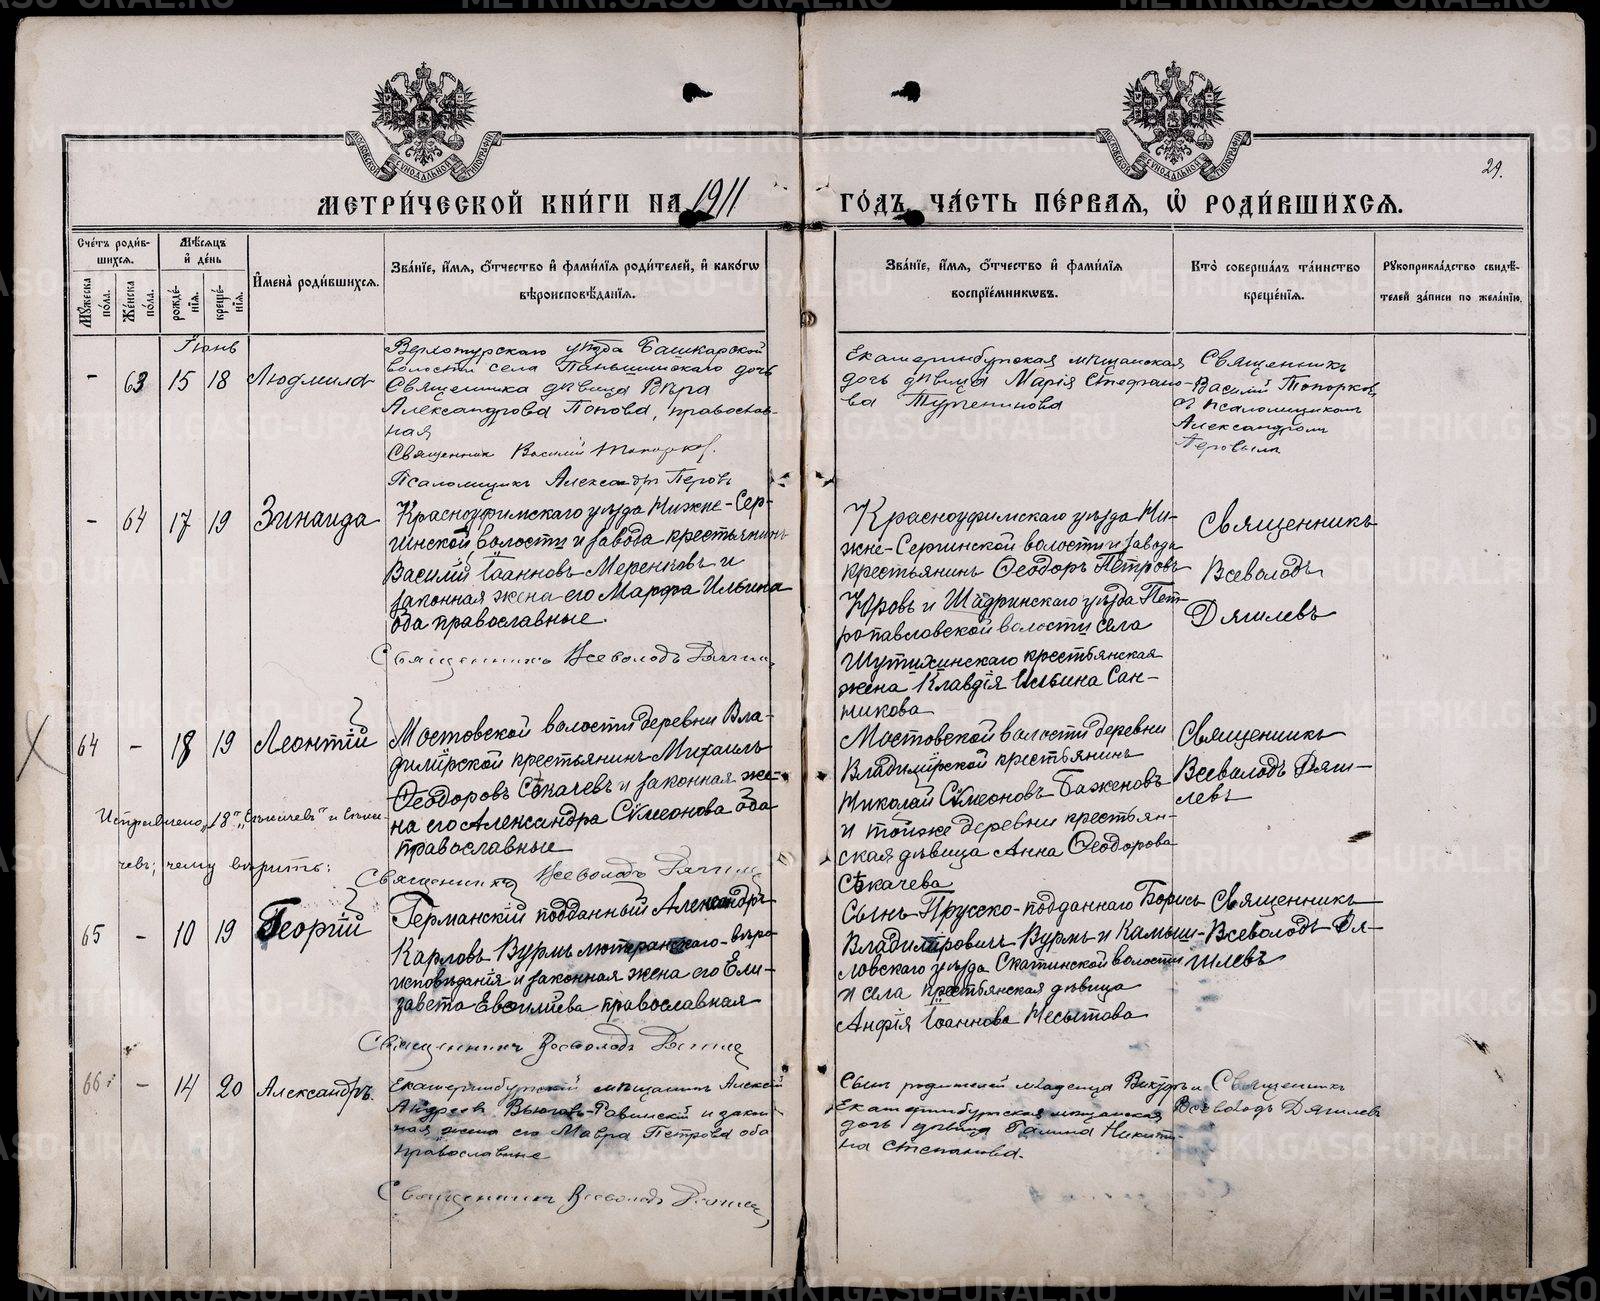 29.
МЕТРИ́ЧЕСКОЙ КНИ́ГИ НА 1911 ГО́ДЪ, ЧА́СТЬ ПЕ́РВАѦ, Ѽ РОДИ́ВШИХСѦ.
Сче́тъ роди́в-
шихсѧ.
Мѣ́сѧцъ
и҆ де́нь
И҆мена̀ роди́вшихсѧ.
Зва́нїе, и҆́мѧ, ѻ҆́тчество и҆ фами́лїѧ роди́телей, и҆ како́гѡ
вѣроисповѣ́данїѧ.
Зва́нїе, и҆́мѧ, ѻ҆́тчество и҆ фами́лїѧ
воспрїе́мниковъ.
Кто̀ соверша́лъ та́инство
креще́нїѧ.
Рукоприкла́дство свидѣ́-
телей за́писи по жела́нїю.
Му́жеска
по́ла.
Же́нска
по́ла.
рожде́-
нїѧ.
креще́-
нїѧ.
Іюнь
- 63 15 18 Людмила
Верхотурскаго уѣзда Башкарской
волости села Паньшинскаго дочь
Священника дѣвица Вѣра
Александрова Попова, православ-
ная
Священник Василий Топорков.
Псаломщикъ Александръ Перовъ
Екатеринбургская мѣщанская
дочь дѣвица Марія Стефано-
ва
Священникъ
Василій Топорковъ
съ псаломщикомъ
Александромъ
Перовымъ
- 64 17 19 Зинаида
Красноуфимскаго уѣзда Нижне-Сер-
гинской волости и завода крестьянинъ
Василій Іоанновъ Меренковъ и
законная жена его Марфа Ильина
оба православные.
Священникъ Всеволодъ Дягилевъ
Красноуфимскаго уѣзда Ни-
жне-Сергинской волости и завода
крестьянинъ Ѳеодоръ Петровъ
и Шадринскаго уѣзда Пет-
ропавловской волости села
Шутихинскаго крестьянская
жена Клавдія Ильина Сан-
никова
Священникъ
Всеволодъ
Дягилевъ
64 - 18 19 Леонтій
Мостовской волости деревни Вла-
димірской крестьянинъ Михаилъ
Ѳеодоровъ Сѣкачевъ и законная же-
на его Александра Сѵмеонова оба
православные
Священникъ Всеволодъ Дягилевъ
Исправлено „18", „Сѣкачевъ" и Сѣка-
чевъ; чему вѣрить:
Мостовской волости деревни
Владимірской крестьянинъ
Николай Сѵмеоновъ Баженовъ
и тойже деревни крестьян-
ская дѣвица Анна Ѳеодорова
Сѣкачева
Священникъ
Всеволодъ Дяги-
левъ
65 - 10 19 Георгій
Германскій подданный Александръ
Карловъ Вурмъ лютеранскаго вѣро-
исповѣданія и законная жена его Ели-
завета Евѳиміева православная
Священникъ Всеволодъ Дягилевъ
Сынъ Прусско-подданнаго Борисъ
Владимировичъ Вурмъ и Камыш-
ловскаго уѣзда Скатинской волости
и села крестьянская дѣвица
Анфія Іоаннова Несытова
Священникъ
Всеволодъ Дя-
гилевъ
66 - 14 20 Александръ.
Екатеринбургскій мѣщанинъ Алексѣй
Андреевъ и закон-
ная жена его Мавра Петрова оба
православные
Священникъ Всеволодъ Дягилевъ
Сынъ родителей младенца Викторъ и
Екатеринбургская мѣщанская
дочь дѣвица Галина Никити-
на Степанова.
Священникъ
Всеволодъ Дягилевъ
METRIKI.GASO-URAL.RU